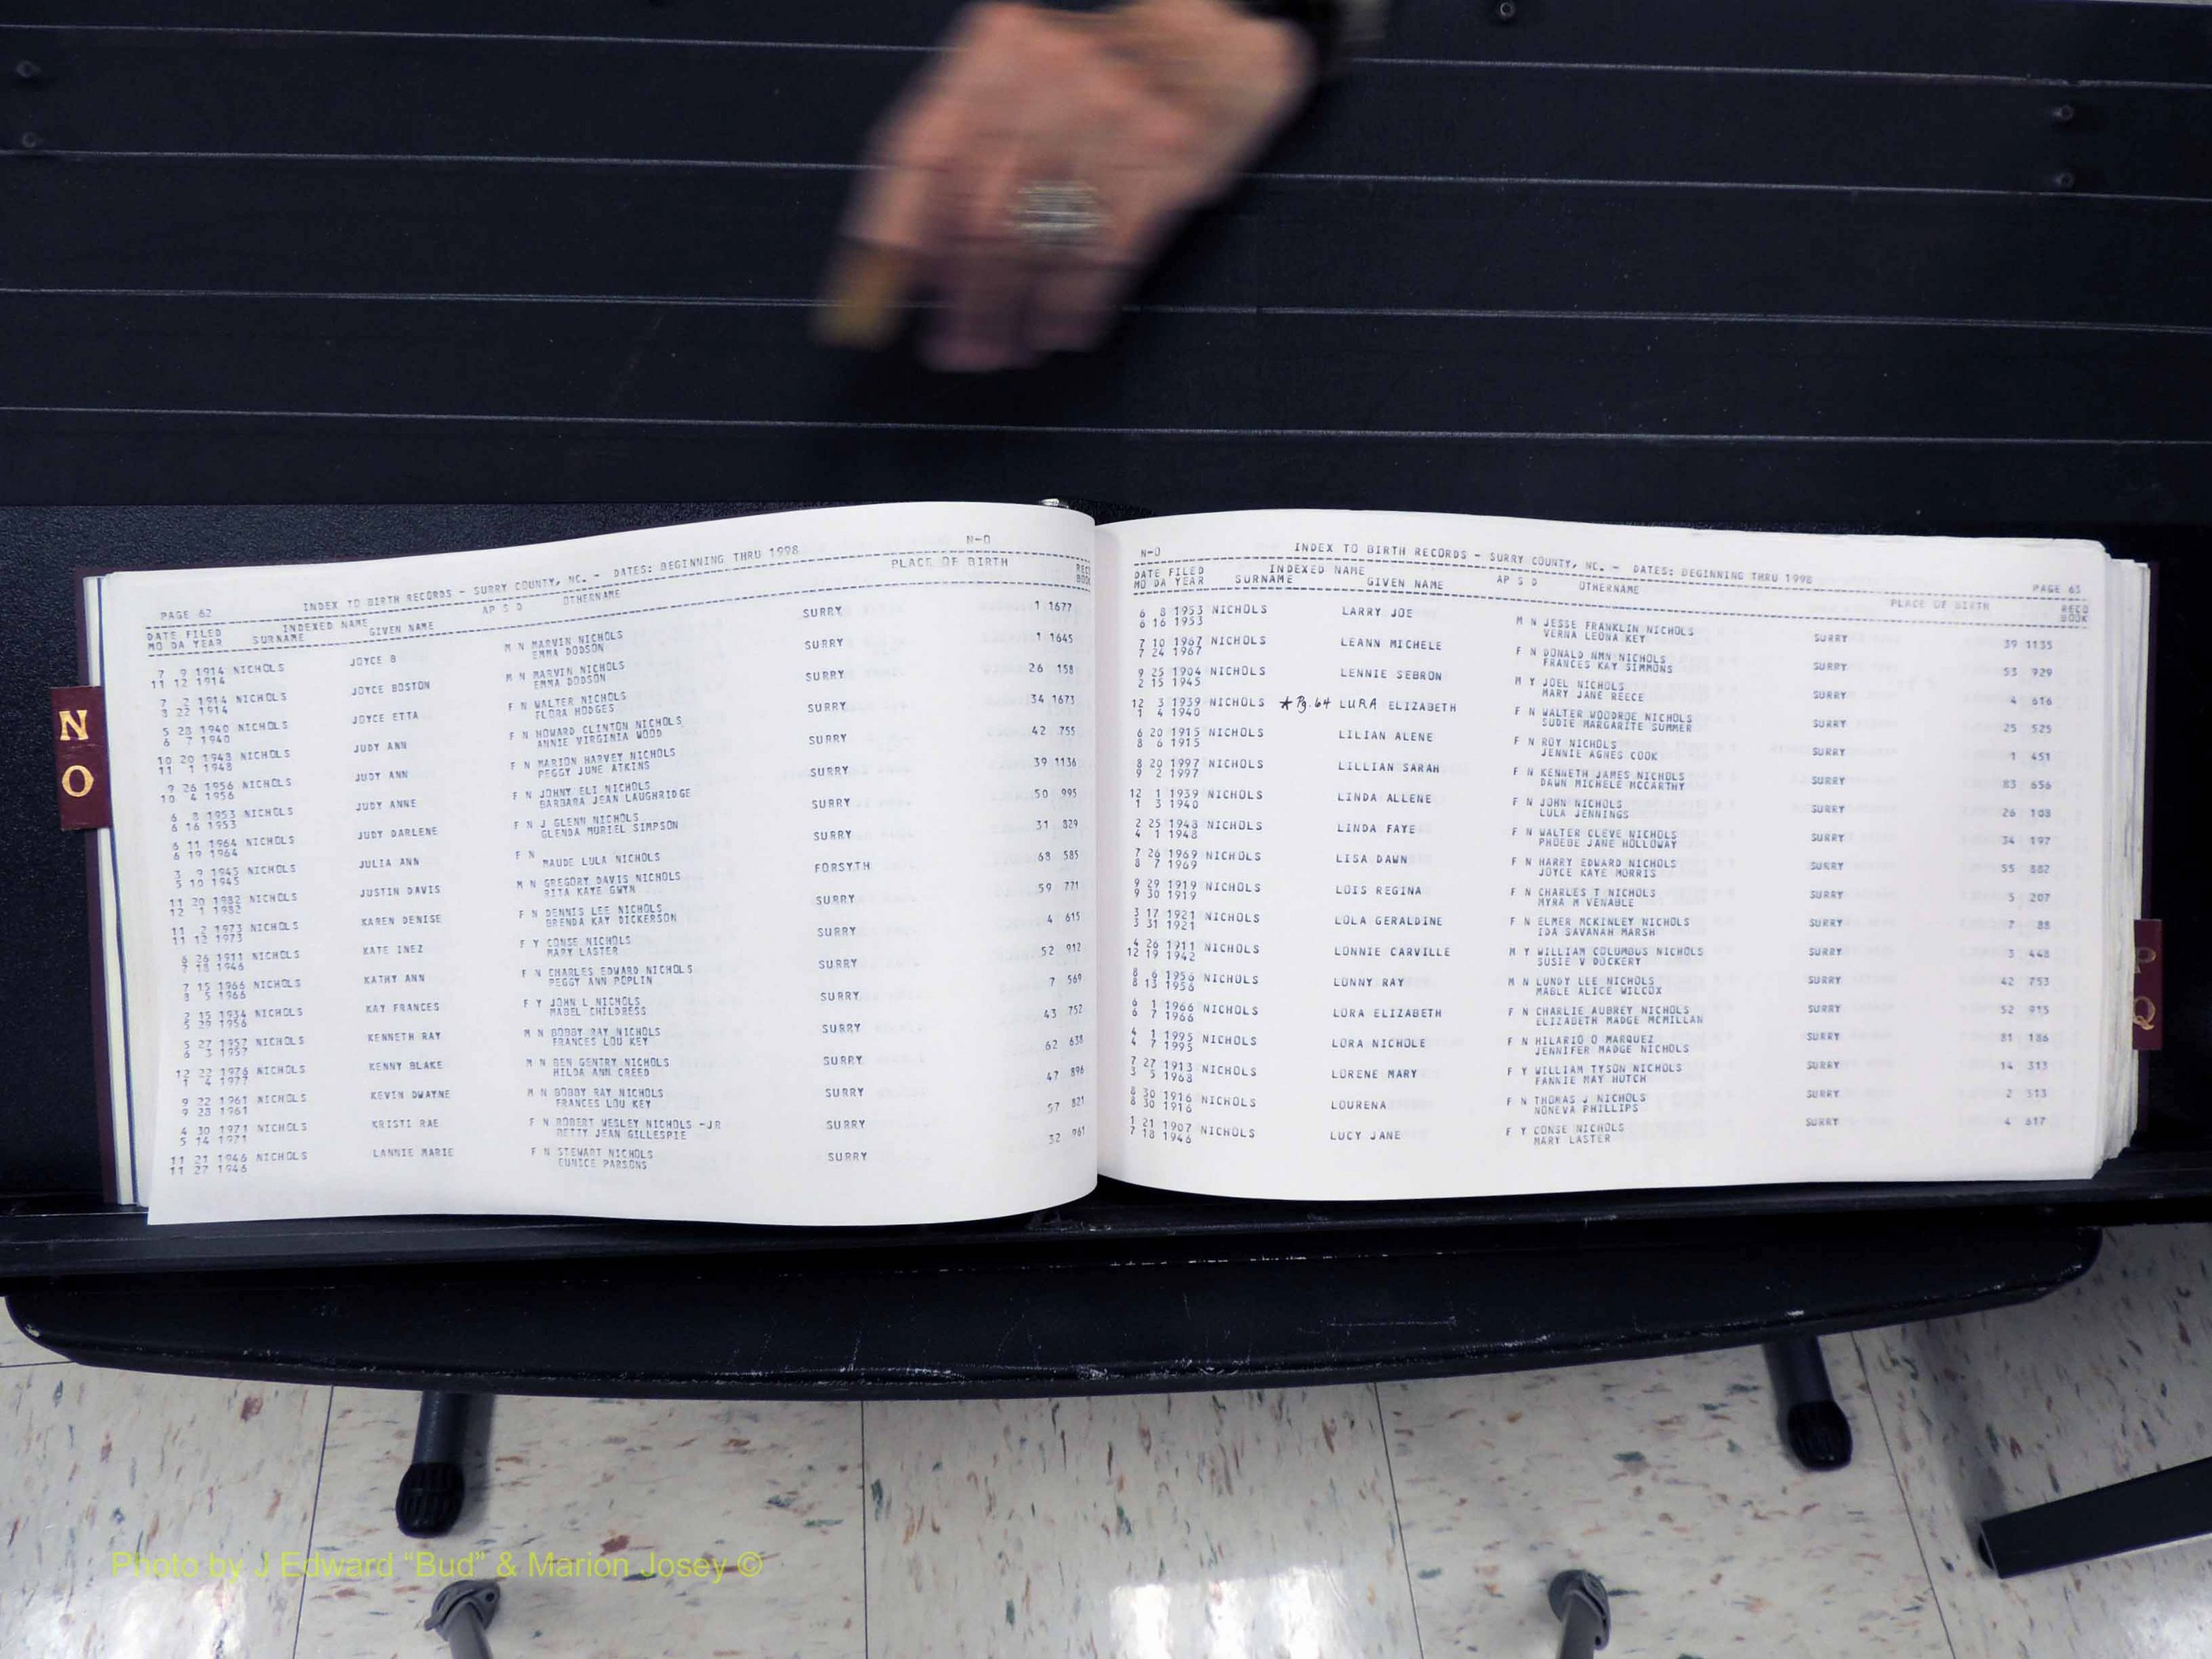 N
O
PAGE 62 INDEX TO BIRTH RECORDS - SURRY COUNTY, NC. - DATES: BEGINNING THRU 1998 N-O
DATE FILED INDEXED NAME AP S D OTHERNAME PLACE OF BIRTH RECO
MO DA YEAR SURNAME GIVEN NAME BOOK
7 9 1914 NICHOLS JOYCE B M N MARVIN NICHOLS SURRY 1 1677
11 12 1914 EMMA DODSON
7 2 1914 NICHOLS JOYCE BOSTON M N MARVIN NICHOLS SURRY 1 1645
3 22 1914 EMMA DODSON
5 28 1940 NICHOLS JOYCE ETTA F N WALTER NICHOLS SURRY 26 158
6 7 1940 FLORA HODGES
10 20 1948 NICHOLS JUDY ANN F N HOWARD CLINTON NICHOLS SURRY 34 1673
11 1 1948 ANNIE VIRGINIA WOOD
9 26 1956 NICHOLS JUDY ANN F N MARION HARVEY NICHOLS SURRY 42 755
10 4 1956 PEGGY JUNE ATKINS
6 8 1953 NICHOLS JUDY ANNE F N JOHNY ELI NICHOLS SURRY 39 1136
6 16 1953 BARBARA JEAN LAUGHRIDGE
6 11 1964 NICHOLS JUDY DARLENE F N J GLENN NICHOLS SURRY 50 995
6 19 1964 GLENDA MURIEL SIMPSON
3 9 1945 NICHOLS JULIA ANN F N SURRY 31 829
5 10 1945 MAUDE LULA NICHOLS
11 20 1982 NICHOLS JUSTIN DAVIS M N GREGORY DAVIS NICHOLS FORSYTH 68 585
12 1 1982 RITA KAYE GWYN
11 2 1973 NICHOLS KAREN DENISE F N DENNIS LEE NICHOLS SURRY 59 771
11 12 1973 BRENDA KAY DICKERSON
6 26 1911 NICHOLS KATE INEZ F Y CONSE NICHOLS SURRY 4 615
7 18 1946 MARY LASTER
7 15 1966 NICHOLS KATHY ANN F N CHARLES EDWARD NICHOLS SURRY 52 912
8 5 1966 PEGGY ANN POPLIN
2 15 1934 NICHOLS KAY FRANCES F Y JOHN L NICHOLS SURRY 7 569
5 29 1956 MABEL CHILDRESS
5 27 1957 NICHOLS KENNETH RAY M N BOBBY RAY NICHOLS SURRY 43 752
6 3 1957 FRANCES LOU KEY
12 22 1976 NICHOLS KENNY BLAKE M N BEN GENTRY NICHOLS SURRY 62 638
1 4 1977 HILDA ANN CREED
9 22 1961 NICHOLS KEVIN DWAYNE M N BOBBY RAY NICHOLS SURRY 47 896
9 28 1961 FRANCES LOU KEY
4 30 1971 NICHOLS KRISTI RAE F N ROBERT WESLEY NICHOLS -JR SURRY 57 821
5 14 1971 BETTY JEAN GILLESPIE
11 21 1946 NICHOLS LANNIE MARIE F N STEWART NICHOLS SURRY 32 961
11 27 1946 EUNICE PARSONS
N-O INDEX TO BIRTH RECORDS - SURRY COUNTY, NC. - DATES: BEGINNING THRU 1998 PAGE 63
DATE FILED INDEXED NAME AP S D OTHERNAME PLACE OF BIRTH RECO
MO DA YEAR SURNAME GIVEN NAME BOOK
6 8 1953 NICHOLS LARRY JOE M N JESSE FRANKLIN NICHOLS SURRY 39 1135
6 16 1953 VERNA LEONA KEY
7 10 1967 NICHOLS LEANN MICHELE F N DONALD NMN NICHOLS SURRY 53 929
7 24 1967 FRANCES KAY SIMMONS
9 25 1904 NICHOLS LENNIE SEBRON M Y JOEL NICHOLS SURRY 4 616
2 15 1945 MARY JANE REECE
12 3 1939 NICHOLS * Pg. 64 LURA ELIZABETH F N WALTER WOODROE NICHOLS SURRY 25 525
1 4 1940 SUDIE MARGARITE SUMMER
6 20 1915 NICHOLS LILIAN ALENE F N ROY NICHOLS SURRY 1 451
8 6 1915 JENNIE AGNES COOK
8 20 1997 NICHOLS LILLIAN SARAH F N KENNETH JAMES NICHOLS SURRY 83 656
9 2 1997 DAWN MICHELE MCCARTHY
12 1 1939 NICHOLS LINDA ALLENE F N JOHN NICHOLS SURRY 26 108
1 3 1940 LULA JENNINGS
2 25 1948 NICHOLS LINDA FAYE F N WALTER CLEVE NICHOLS SURRY 34 197
4 1 1948 PHOEBE JANE HOLLOWAY
7 26 1969 NICHOLS LISA DAWN F N HARRY EDWARD NICHOLS SURRY 55 882
8 7 1969 JOYCE KAYE MORRIS
9 29 1919 NICHOLS LOIS REGINA F N CHARLES T NICHOLS SURRY 5 207
9 30 1919 MYRA M VENABLE
3 17 1921 NICHOLS LOLA GERALDINE F N ELMER MCKINLEY NICHOLS SURRY 7 88
3 31 1921 IDA SAVANAH MARSH
4 26 1911 NICHOLS LONNIE CARVILLE M Y WILLIAM COLUMBUS NICHOLS SURRY 3 448
12 19 1942 SUSIE V DOCKERY
8 6 1956 NICHOLS LONNY RAY M N LUNDY LEE NICHOLS SURRY 42 753
8 13 1956 MABLE ALICE WILCOX
6 1 1966 NICHOLS LORA ELIZABETH F N CHARLIE AUBREY NICHOLS SURRY 52 915
6 7 1966 ELIZABETH MADGE MCMILLAN
4 1 1995 NICHOLS LORA NICHOLE F N HILARIO O MARQUEZ SURRY 81 186
4 7 1995 JENNIFER MADGE NICHOLS
7 27 1913 NICHOLS LORENE MARY F Y WILLIAM TYSON NICHOLS SURRY 14 313
3 5 1968 FANNIE MAY HUTCH
8 30 1916 NICHOLS LOURENA F N THOMAS J NICHOLS SURRY 2 513
8 30 1916 NONEVA PHILLIPS
1 21 1907 NICHOLS LUCY JANE F Y CONSE NICHOLS SURRY 4 617
7 18 1946 MARY LASTER
Q
Photo by J Edward “Bud” & Marion Josey ©